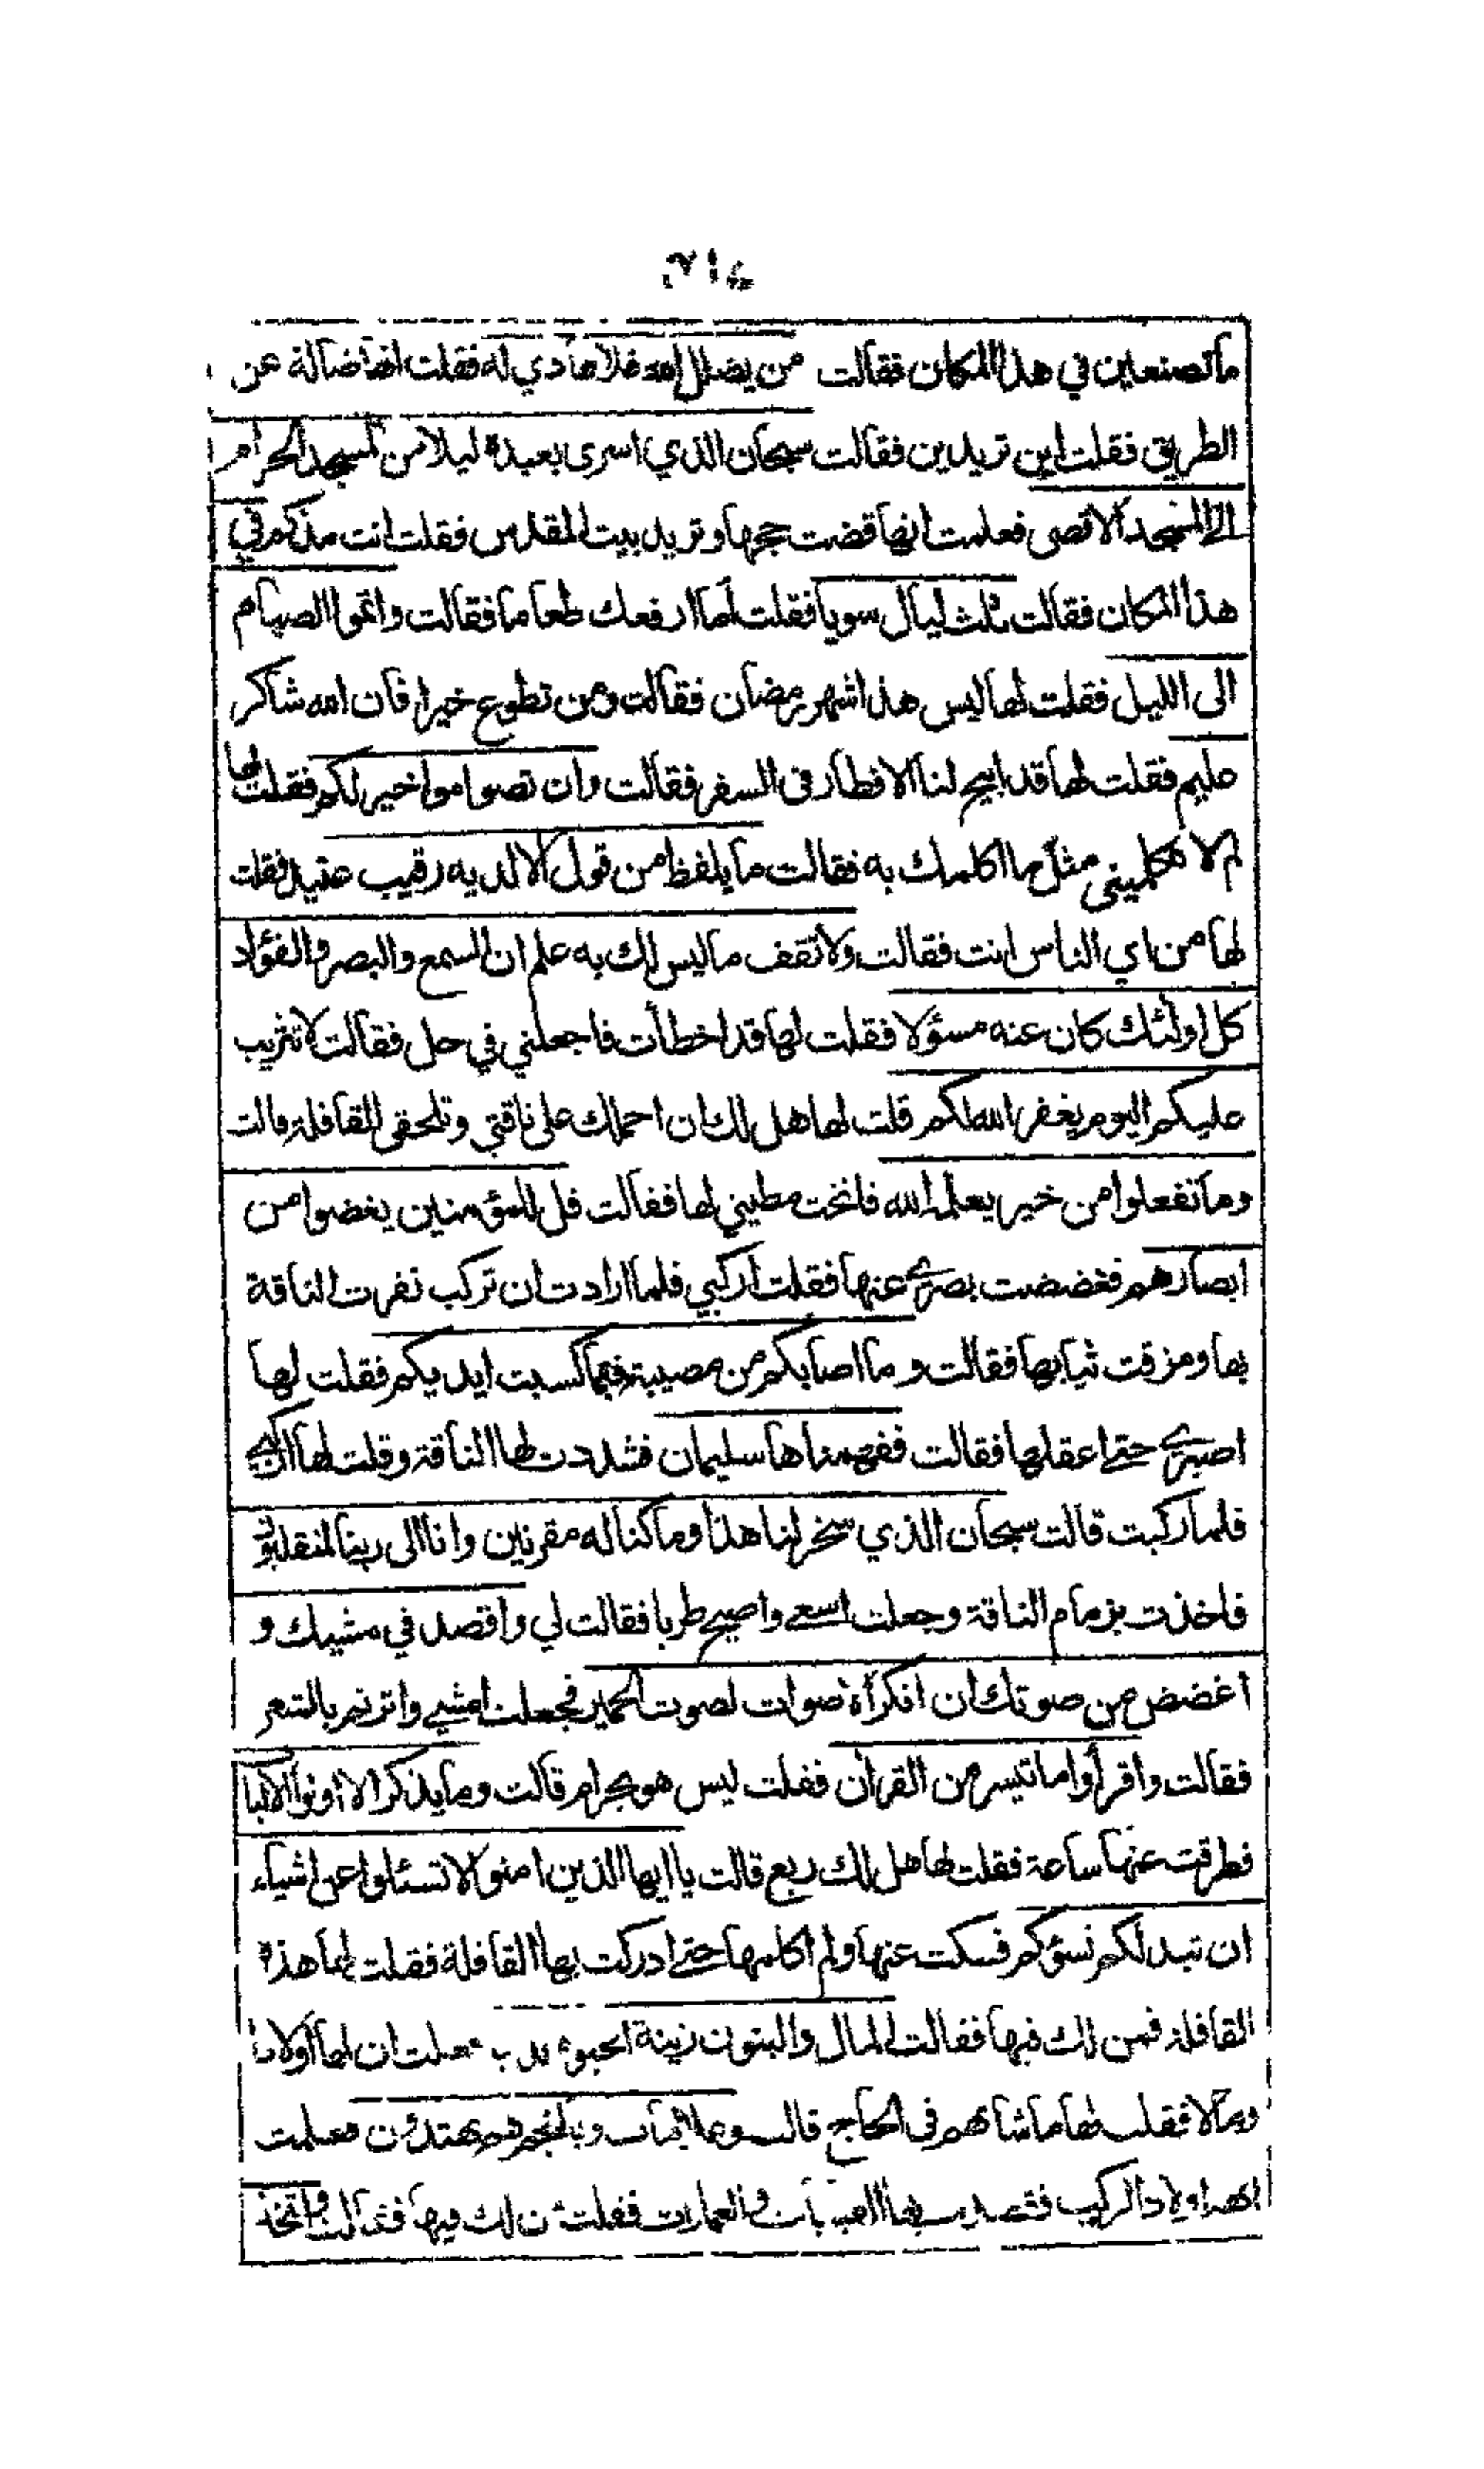 ما تصنعين في هذا المكان فقالت من يضلل الله فلا هادي له فقلت انها ضالة عن
الطريق فقلت اين تريدين فقالت سبحان الذي اسرى بعبده ليلا من المسجد الحرام
الى المسجد الاقصى فعلمت انها قضت حجها وتريد بيت المقدس فقلت انت مذكم في
هذا المكان فقالت ثلث ليال سويا فقلت اما ارفعك طعاما فقالت واتموا الصيام
الى الليل فقلت لها ليس هذا شهر رمضان فقالت ومن تطوع خيرا فان الله شاكر
عليم فقلت لها قد ابيح لنا الافطار فى السفر فقالت وان تصوموا خير لكم فقلت لها
لم لا تكلميني مثل ما اكلمك به فقالت ما يلفظ من قول الا لديه رقيب عتيد فقلت
لها من اي الناس انت فقالت ولا تقف ما ليس لك به علم ان السمع والبصر والفؤاد
كل اولئك كان عنه مسؤلا فقلت لها قد اخطأت فاجعلني في حل فقالت لا تثريب
عليكم اليوم يغفر الله لكم قلت لها هل لك ان احملك على ناقتي وتلحقى القافلة قالت
وما تفعلوا من خير يعلمه الله فانخت مطيتي لها فقالت قل للمؤمنين يغضوا من
ابصارهم فغضضت بصرى عنها فقلت اركبي فلما ارادت ان تركب نفرت الناقة
بها ومزقت ثيابها فقالت وما اصابكم من مصيبة فبما كسبت ايديكم فقلت لها
اصبري حتى اعقلها فقالت ففهمناها سليمان فشددت لها الناقة وقلت لها اركبي
فلما ركبت قالت سبحان الذي سخر لنا هذا وما كنا له مقرنين وانا الى ربنا لمنقلبون
فاخذت بزمام الناقة وجعلت اسعى واصيح طربا فقالت لي واقصد في مشيك و
اغضض من صوتك ان انكر الاصوات لصوت الحمير فجعلت امشي واترنم بالشعر
فقالت واقرأوا ما تيسر من القرآن فقلت ليس هو بحرام قالت وما يذكر الا اولوا الالباب
فطرقت عنها ساعة فقلت لها هل لك ربع قالت يا ايها الذين امنوا لا تسئلوا عن اشياء
ان تبد لكم تسؤكم فسكت عنها ولم اكلمها حتى ادركت بها القافلة فقلت لها هذه
القافلة فمن لك فيها فقالت المال والبنون زينة الحيوة فعلمت ان لها اولادا
ومالا فقلت لها ما شانهم فى الحاج قالت وعلامات وبالنجم هم يهتدون فعلمت
انهم ادلاء الركب فقصدت بها القباب والعمارات فقلت من لك فيها فقالت واتخذ